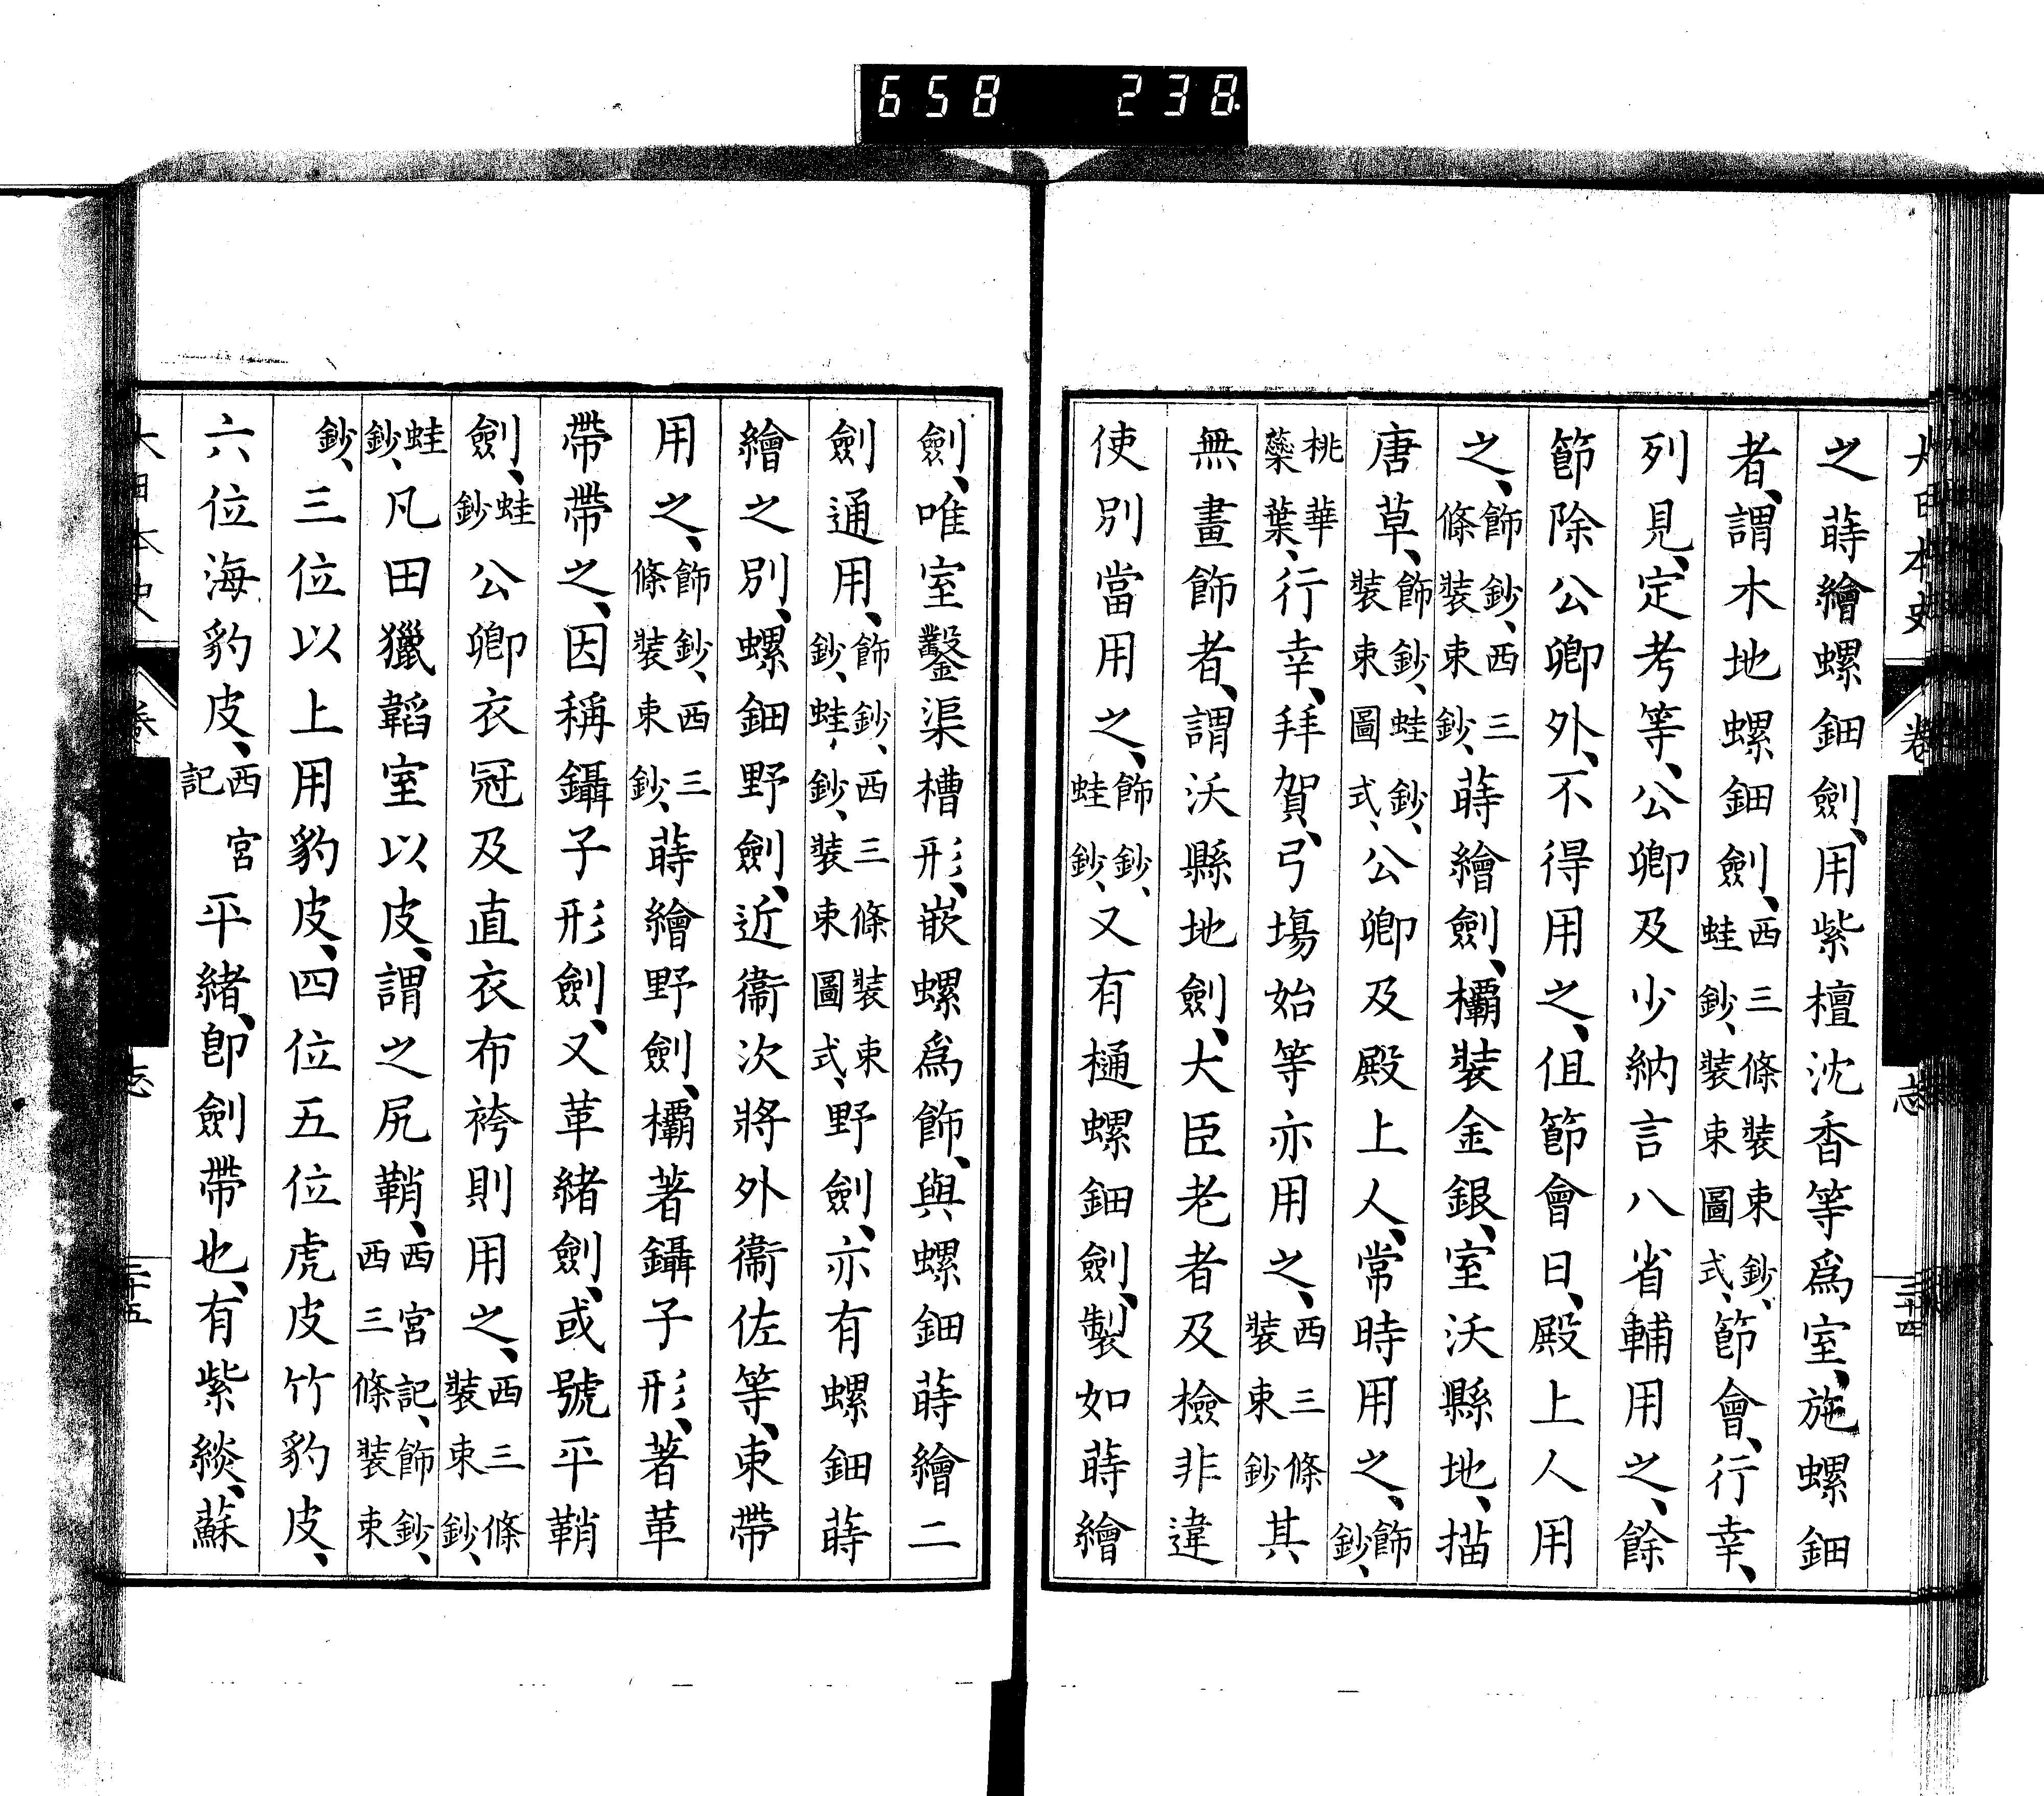 658 238
大日本史 卷 志 三十四
之蒔繪螺鈿劍、用紫檀沈香等爲室、施螺鈿
者、謂木地螺鈿劍、西三條裝束鈔、蛙鈔、裝束圖式、節會、行幸、
列見、定考等、公卿及少納言八省輔用之、餘
節除公卿外、不得用之、但節會日、殿上人用
之、飾鈔、西三條裝束鈔、蒔繪劍、欛裝金銀、室沃縣地、描
唐草、飾鈔、蛙鈔、裝束圖式、公卿及殿上人、常時用之、飾鈔、
桃華蘂葉、行幸、拜賀、弓塲始等亦用之、西三條裝束鈔其
無畫飾者、謂沃縣地劍、大臣老者及檢非違
使別當用之、飾鈔、蛙鈔、又有樋螺鈿劍、製如蒔繪
劍、唯室鑿渠槽形、嵌螺爲飾、與螺鈿蒔繪二
劍通用、飾鈔、西三條裝束鈔、蛙鈔、裝束圖式、野劍、亦有螺鈿蒔
繪之別、螺鈿野劍、近衞次將外衞佐等、束帶
用之、飾鈔、西三條裝束鈔、蒔繪野劍、欛著鑷子形、著革
帶帶之、因稱鑷子形劍、又革緖劍、或號平鞘
劍、蛙鈔公卿衣冠及直衣布袴則用之、西三條裝束鈔、
蛙鈔、凡田獵韜室以皮、謂之尻鞘、西宮記、飾鈔、西三條裝束
鈔、三位以上用豹皮、四位五位虎皮竹豹皮、
六位海豹皮、西宮記平緖、卽劍帶也、有紫緂、蘇
大日本史 卷 志 三十五